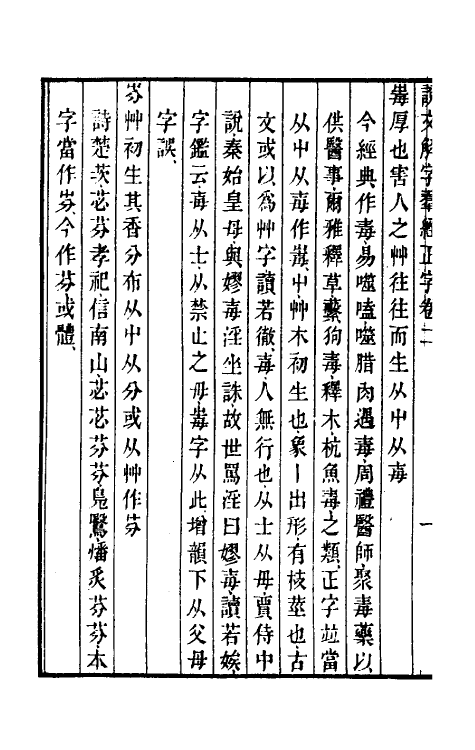 說文解字羣經正字卷二 一
毒厚也害人之艸往往而生从屮从毐
今經典作毒易噬嗑噬腊肉遇毒周禮醫師聚毒藥以
供醫事爾雅釋草蘻狗毒釋木杬魚毒之類正字竝當
从屮从毐作𡴕屮艸木初生也象丨出形有枝莖也古
文或以爲艸字讀若徹毐人無行也从士从毋賈侍中
說秦始皇母與嫪毐淫坐誅故世罵淫曰嫪毐讀若娭
字鑑云毐从士从禁止之毋毒字从此增韻下从父母
字誤
岁艸初生其香分布从屮从分或从艸作芬
詩楚茨苾芬孝祀信南山苾苾芬芬鳧鷖燔炙芬芬本
字當作岁今作芬或體